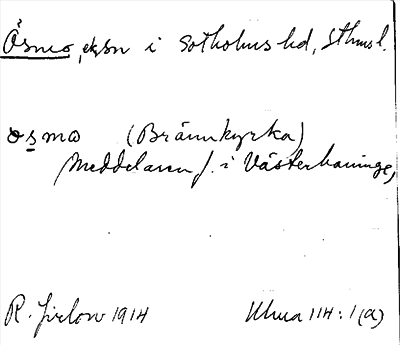 Ösmo, sksn i Sotholms hd, Sthms l.
osmo (Brännkyrka)
Meddelaren f. i Västerhaninge,
R. Jirlow 1914 Ulma 114:1(a)